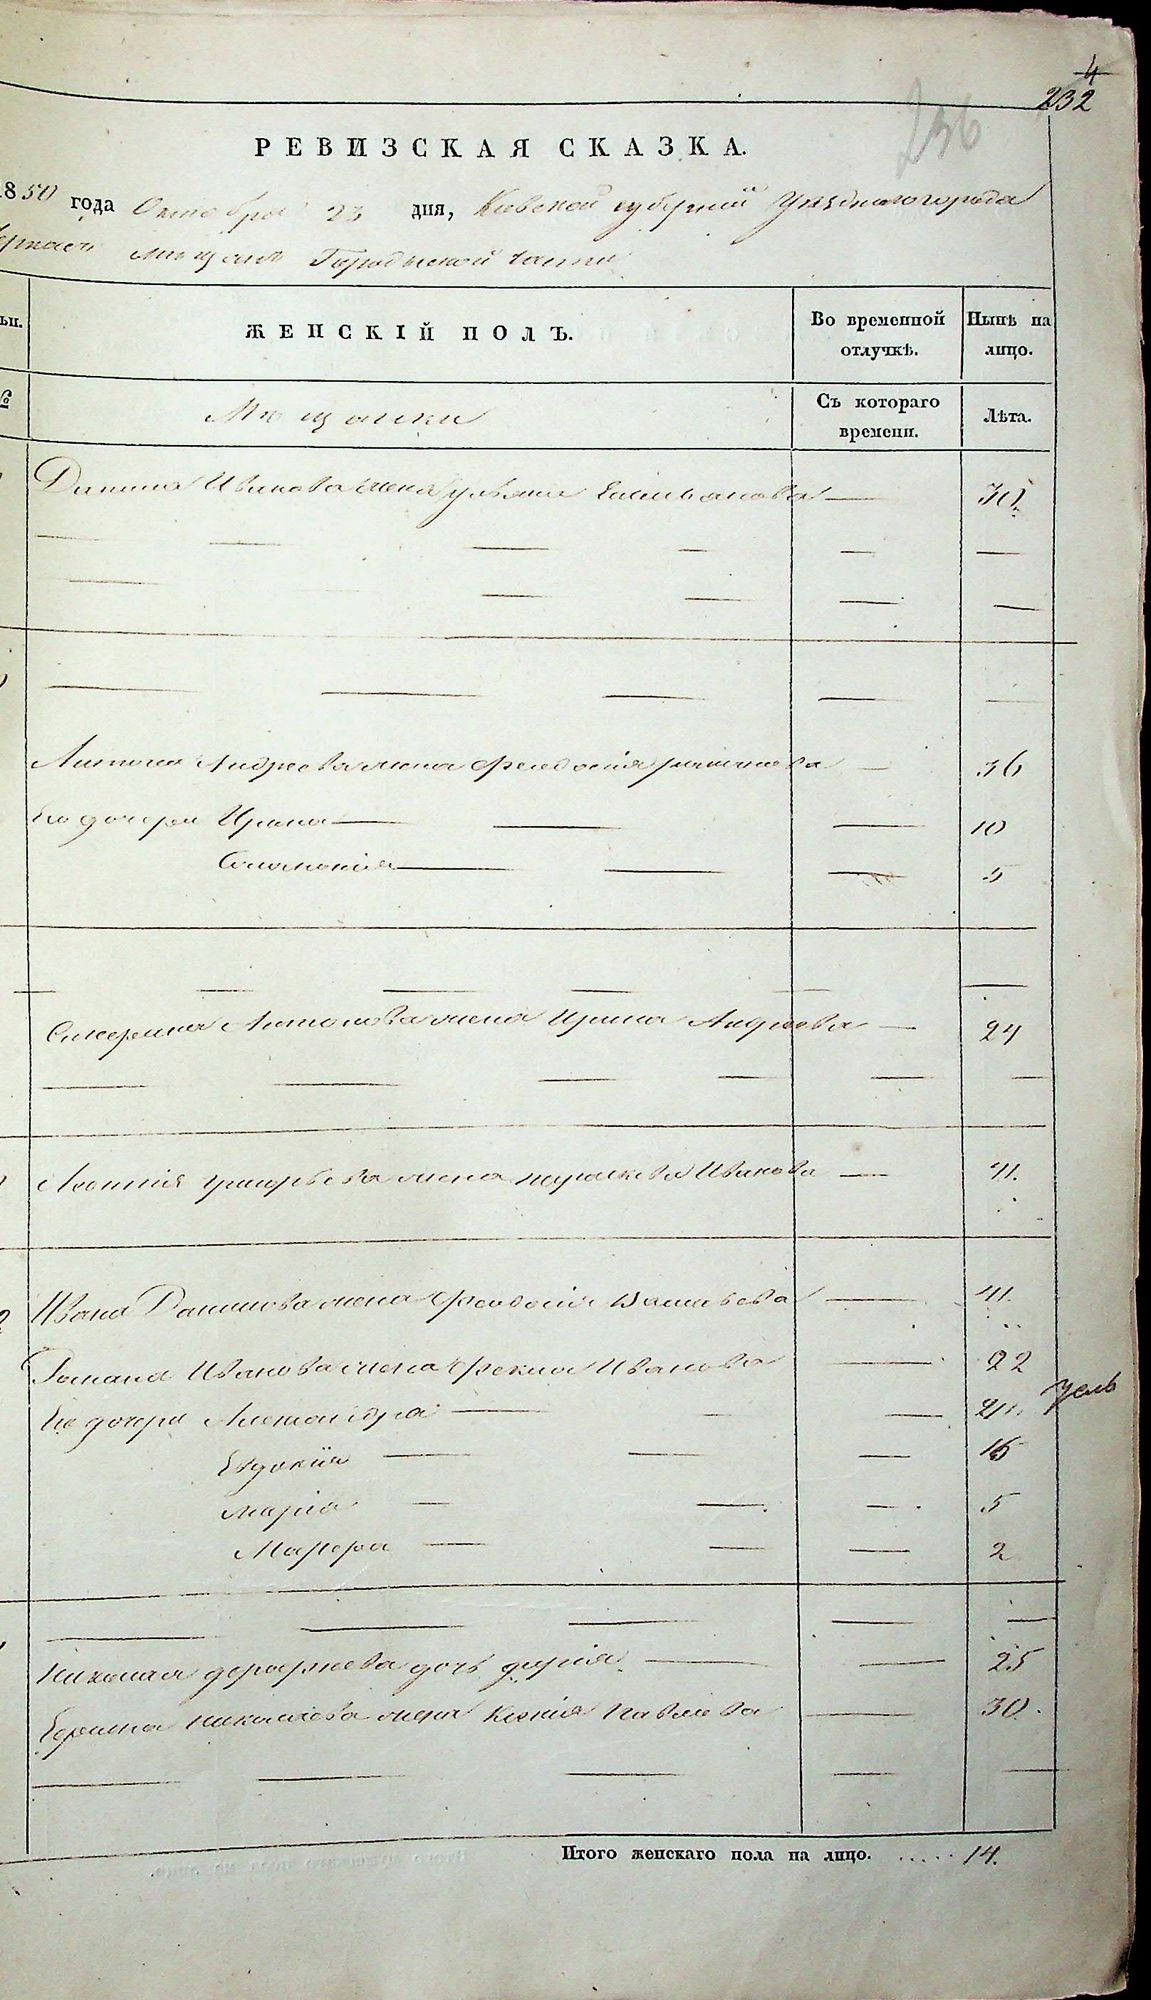 4
232
236
РЕВИЗСКАЯ СКАЗКА.
1850 года Октября 23 дня, Киевской губерніи Уѣзднаго города
Черкасъ мѣщанъ Городыской части
ЖЕНСКІЙ ПОЛЪ.
Во временной отлучкѣ.
Нынѣ на лицо.
№
Мѣщанки
Съ котораго времени.
Лѣта.
Данила Иванова жена Ульяна Емильянова — 30
Антона Андреева жена Феодосія — 36
Его дочери Ирина — 10
Соломонія — 5
Антонова жена Ирина Андреева — 24
Леонтія Григорьева жена Параскева Иванова — 41.
2 Ивана Данилова жена Феодосія Васильева — 41.
Романа Иванова жена Фекла Иванова — 22
Его дочери Александра —
Евдокія — 16
Марія — 5
Марфа — 2
Николая дочь Дарія — 25
Николаева жена Ксенія Павлова — 30.
Итого женскаго пола на лицо. ..... 14.